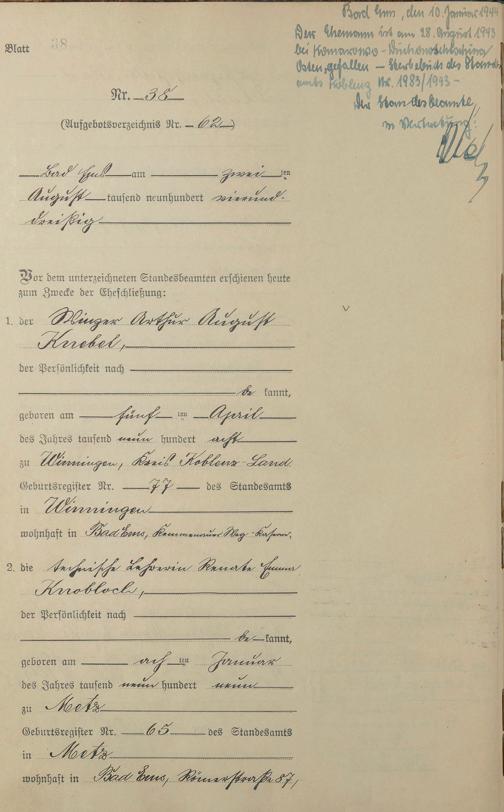 Bad Ems, den 10. Januar 1944
Der Ehemann ist am 28. August 1943
bei Komarowo-
Osten, gefallen – Sterbebuch des Standes-
amts Koblenz Nr. 1983/1943 –
Der Standesbeamte
in Vertretung:
Blatt 38
Nr. 38
(Aufgebotsverzeichnis Nr. 62)
Bad Ems am zwei ten
August tausend neunhundert vierund-
dreißig
Vor dem unterzeichneten Standesbeamten erschienen heute
zum Zwecke der Eheschließung:
1. der Winzer Arthur August
Knebel,
der Persönlichkeit nach
be kannt,
geboren am fünf ten April
des Jahres tausend neun hundert acht
zu Winningen, Kreis Koblenz-Land
Geburtsregister Nr. 77 des Standesamts
in Winningen
wohnhaft in Bad Ems, Kemmenauer Weg-Kasern.
2. die technische Lehrerin Renate Emma
Knobloch,
der Persönlichkeit nach
be kannt,
geboren am ach ten Januar
des Jahres tausend neun hundert neun
zu Metz
Geburtsregister Nr. 65 des Standesamts
in Metz
wohnhaft in Bad Ems, Römerstraße 87,